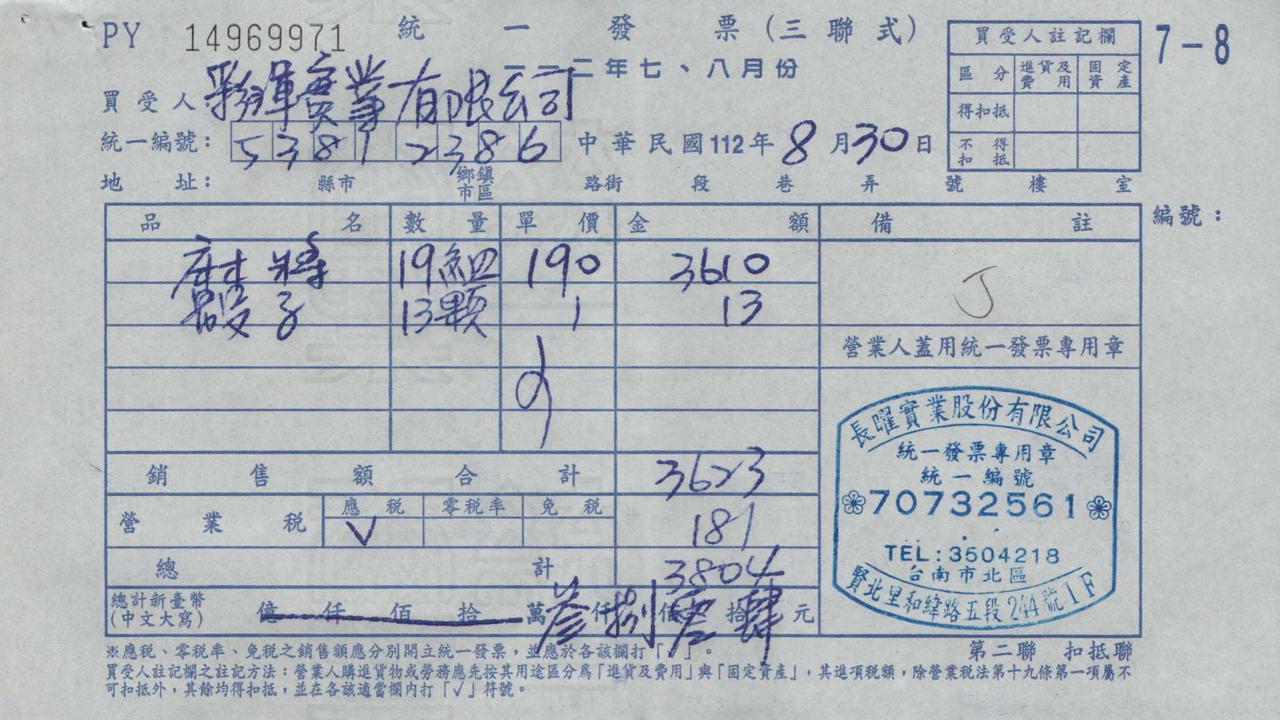 PY 14969971
統一發票(三聯式)
一一二年七、八月份
7-8
買受人註記欄
區分 進貨及費用 固定資產
得扣抵
不得扣抵
買受人 彩輝實業有限公司
統一編號: 53812386
中華民國112年8月30日
地址: 縣市 鄉鎮市區 路街 段 巷 弄 號 樓 室
編號:
品名 數量 單價 金額 備註
麻將 19組 190 3610
骰子 13顆 1 13
銷售額合計 3623
營業稅 應稅 V 零稅率 免稅 181
總計 3804
總計新臺幣(中文大寫) 億仟佰拾萬 參仟 捌佰 零拾 肆元
營業人蓋用統一發票專用章
長曜實業股份有限公司
統一發票專用章
統一編號
70732561
TEL:3504218
台南市北區
賢北里和緯路五段244號1F
第二聯 扣抵聯
※應稅、零稅率、免稅之銷售額應分別開立統一發票,並應於各該欄打「√」。
買受人註記欄之註記方法:營業人購進貨物或勞務應先按其用途區分爲「進貨及費用」與「固定資產」,其進項稅額,除營業稅法第十九條第一項屬不
可扣抵外,其餘均得扣抵,並在各該適當欄內打「√」符號。